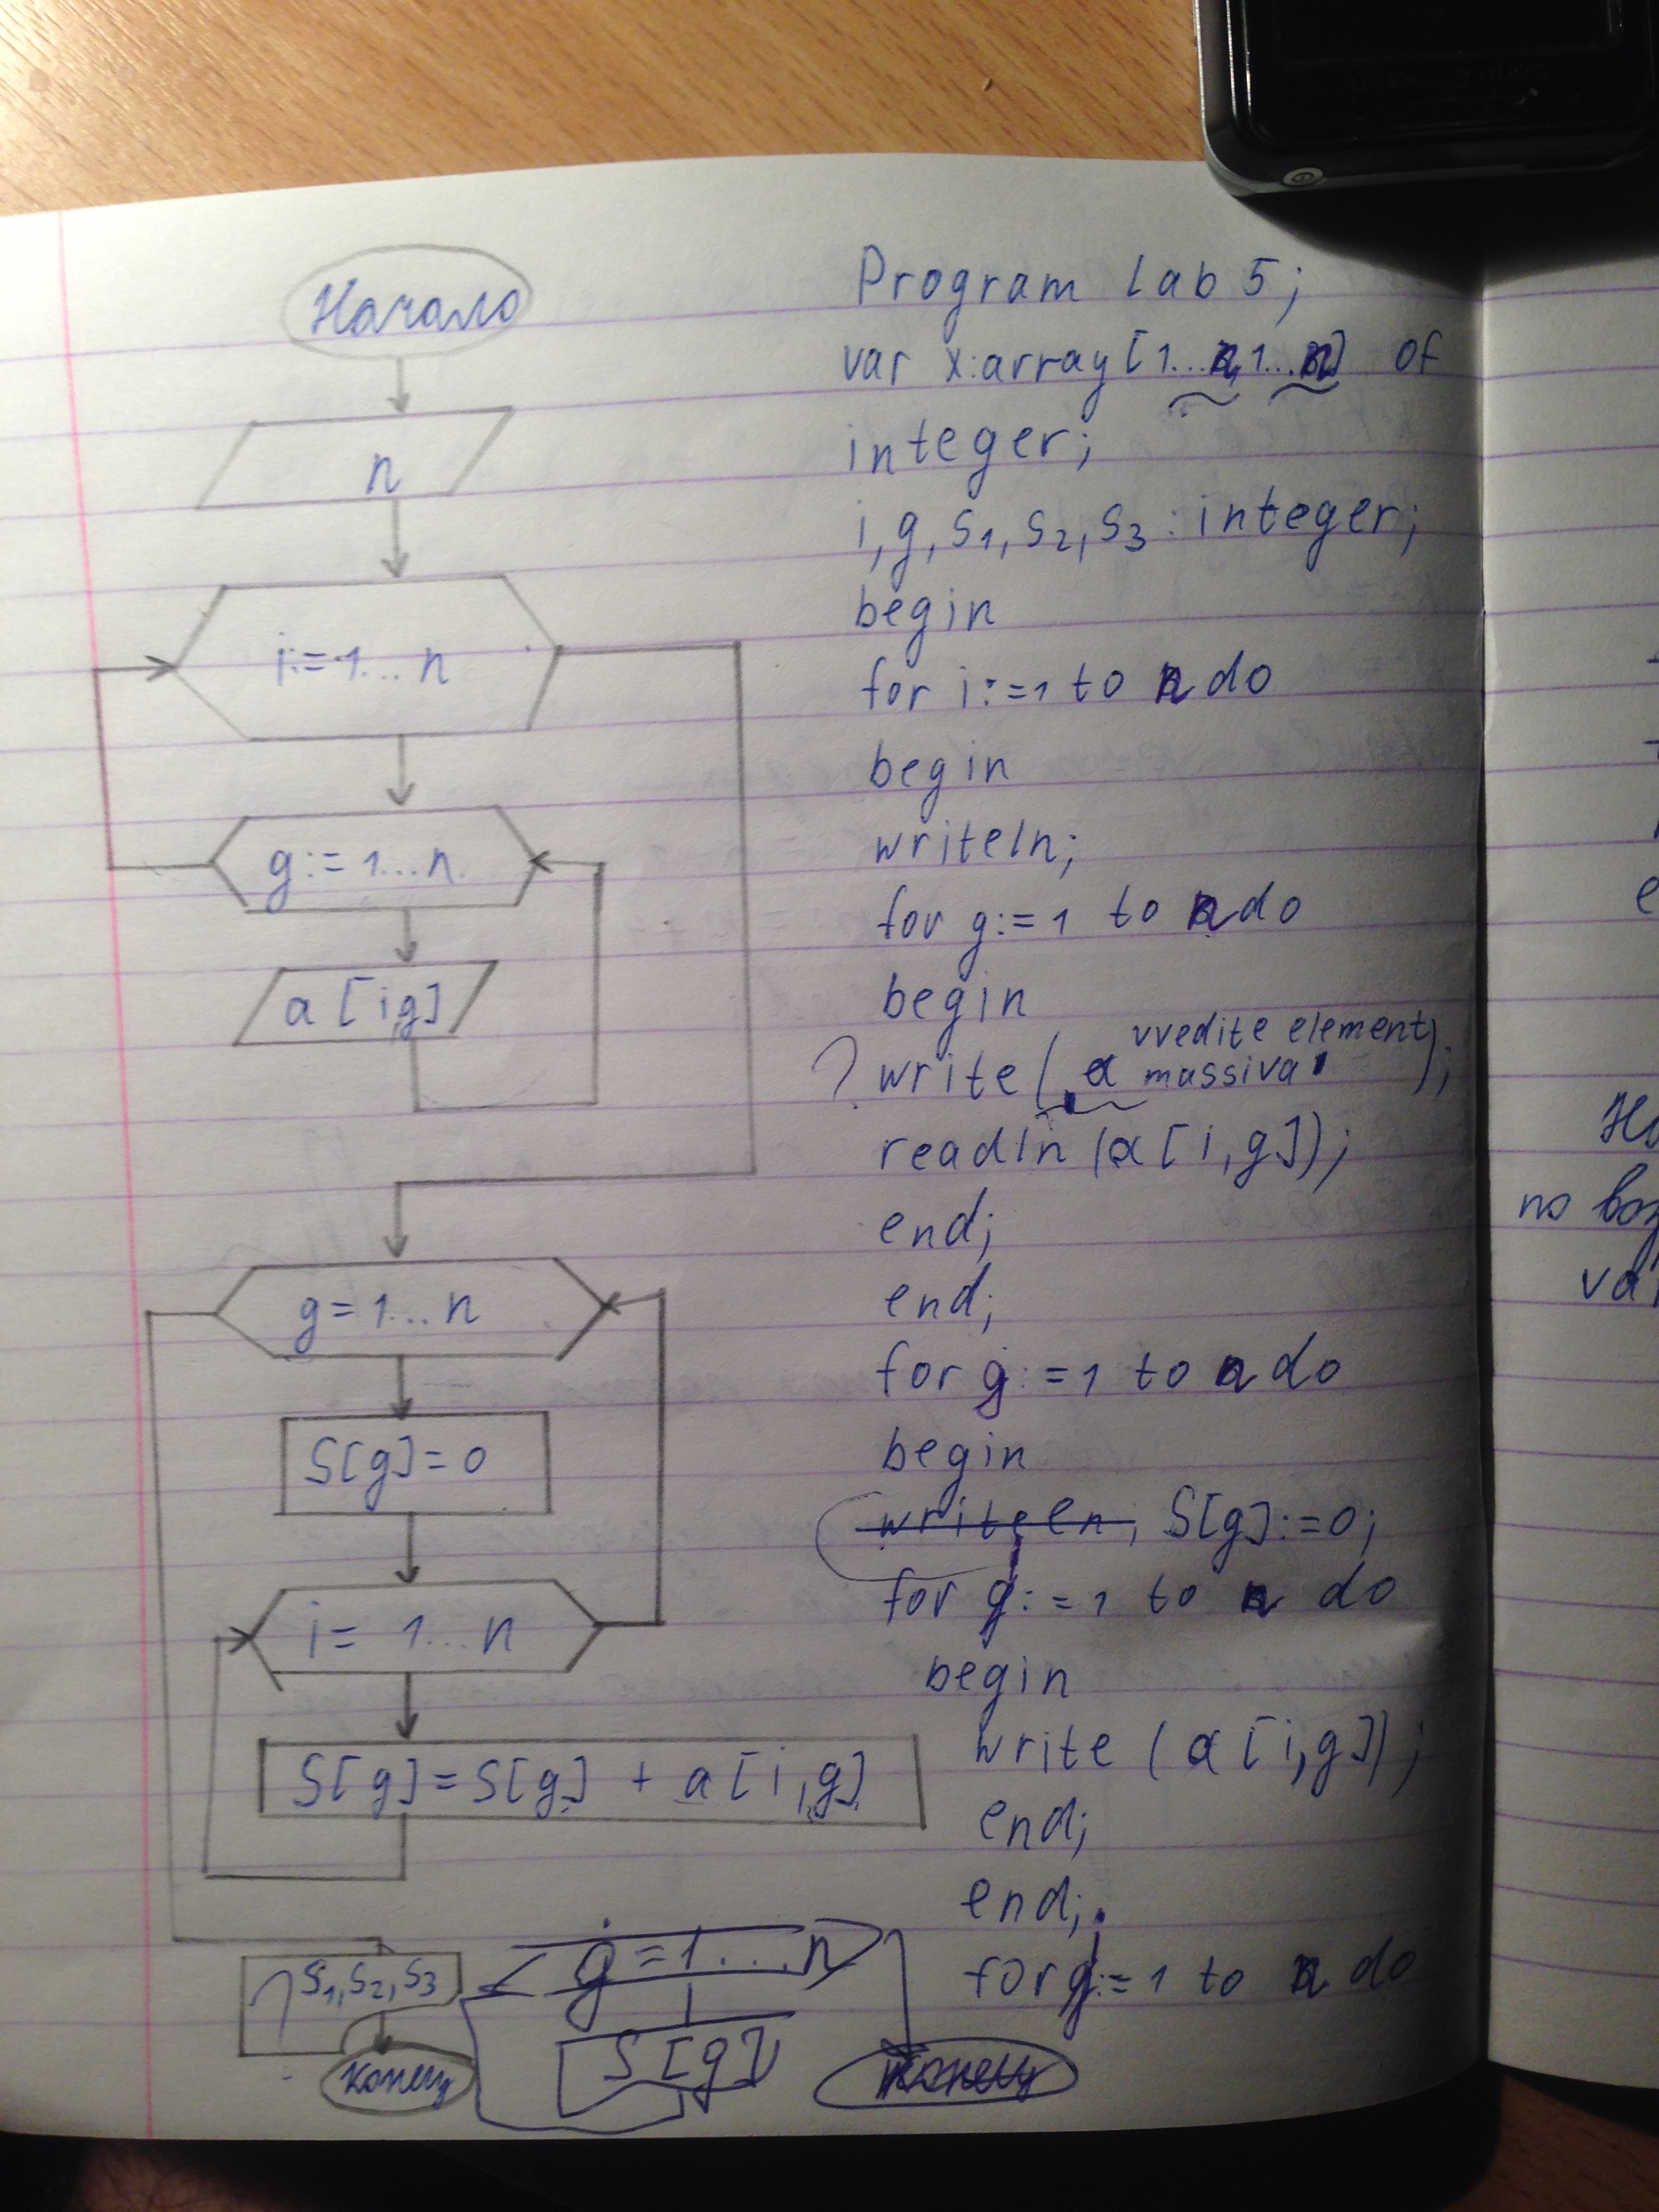 Начало
n
i:=1...n
g:=1...n
a[i,g]
g=1...n
S[g]=0
i= 1...n
S[g]=S[g] + a[i,g]
S1,S2,S3
конец
g=1...n
S[g]
конец
Program lab 5;
var x:array[1...n,1...n] of
integer;
i,g,S1,S2,S3:integer;
begin
for i:=1 to n do
begin
writeln;
for g:=1 to n do
begin
vvedite element
? write('a massiva');
readln(a[i,g]);
end;
end;
for g:=1 to n do
begin
writeln; S[g]:=0;
for g:=1 to n do
begin
write(a[i,g]);
end;
end;
for g:=1 to n do
no